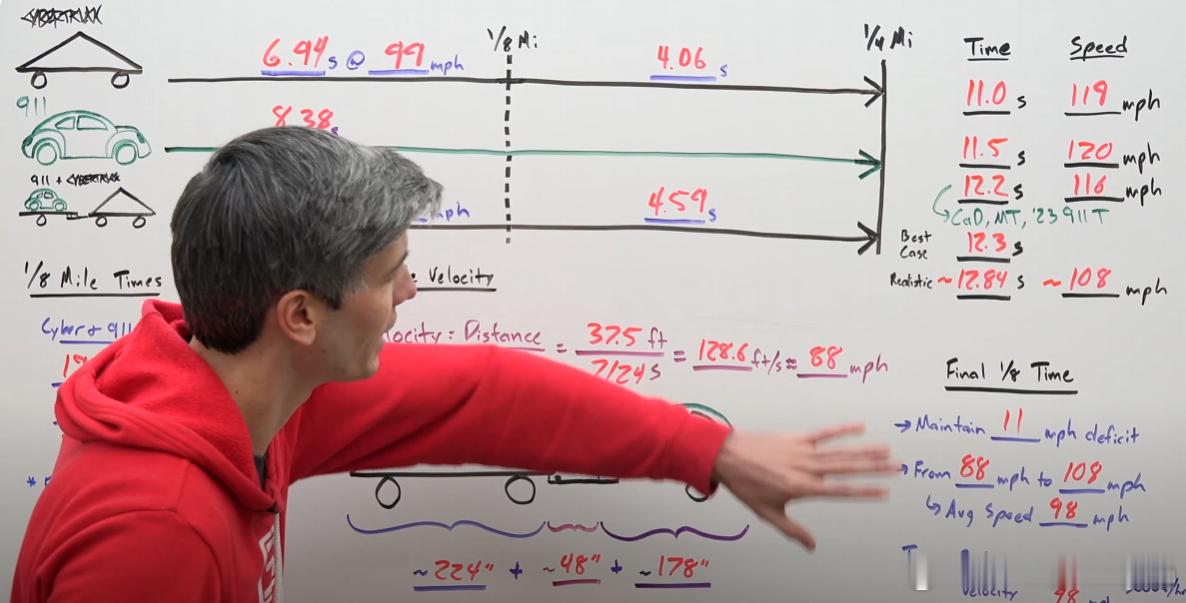 CYBERTRUCK
6.94 s @ 99 mph
1/8 Mi
4.06 s
1/4 Mi
Time Speed
11.0 s 119 mph
911
8.38 s
11.5 s 120 mph
911 + CYBERTRUCK
mph
4.59 s
12.2 s 116 mph
C&D, MT, '23 911 T
Best Case 12.3 s
Realistic ~12.84 s ~108 mph
1/8 Mile Times
Velocity
Cyber + 911
Velocity: Distance = 37.5 ft / 7/24 s = 128.6 ft/s ≈ 88 mph
Final 1/8 Time
→ Maintain 11 mph deficit
→ From 88 mph to 108 mph
↳ Avg Speed 98 mph
~224" + ~48" + ~178"
Velocity 98